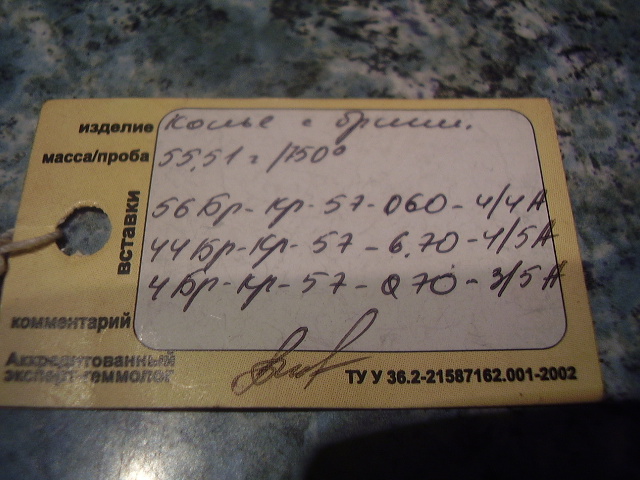 изделие Колье с брилл.
масса/проба 55,51 г /750°
вставки
56 Бр-Кр-57-060-4/4А
44 Бр-Кр-57-6,70-4/5А
4 Бр-Кр-57-0 70-3/5А
комментарий
Аккредитованный
эксперт-геммолог
ТУ У 36.2-21587162.001-2002